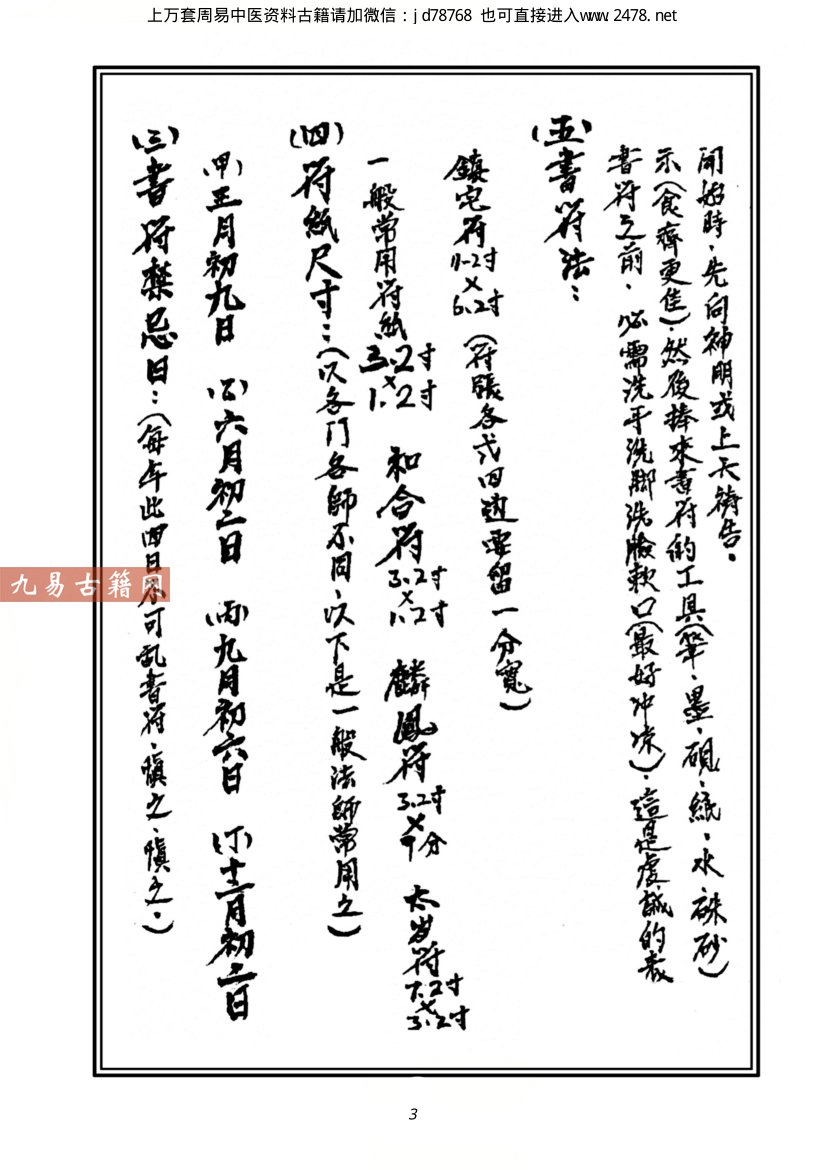 上万套周易中医资料古籍请加微信：jd78768 也可直接进入www.2478.net
(三)書符禁忌日：(每年此四日不可乱書符、慎之、慎之。)
(甲)月初九日 (乙)六月初二日 (丙)九月初六日 (丁)十二月初二日
(四)符紙尺寸：(以各门各師不同、以下是一般法師常用之)
一般常用符紙3.2寸×1.2寸 和合符3.2寸×1.2寸 麟鳳符3.2寸×9分 太岁符7.2寸×3.2寸
鎮宅符11.2寸×6.2寸(符張各式四边要留一分寬)
(五)書符法：
書符之前，必需洗手洗脚洗臉軟口(最好冲凉)，這是虔誠的表
示(食齊更佳)然後捧來書符的工具(筆、墨、硯、紙、水、硃砂)
開始時，先向神明或上天禱告。
九易古籍网
3